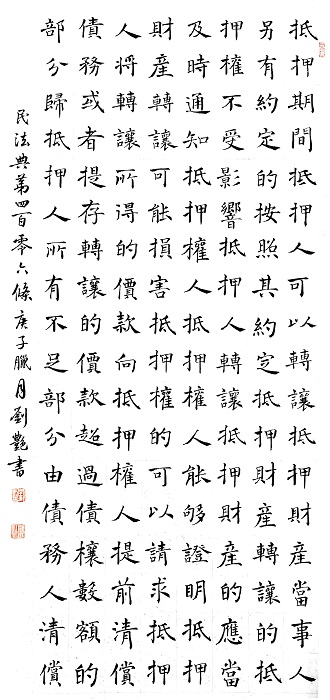 抵押期間抵押人可以轉讓抵押財產當事人
另有約定的按照其約定抵押財產轉讓的抵
押權不受影響抵押人轉讓抵押財產的應當
及時通知抵押權人抵押權人能够證明抵押
財產轉讓可能損害抵押權的可以請求抵押
人將轉讓所得的價款向抵押權人提前清償
債務或者提存轉讓的價款超過債權數額的
部分歸抵押人所有不足部分由債務人清償
民法典第四百零六條庚子臘月劉艷書